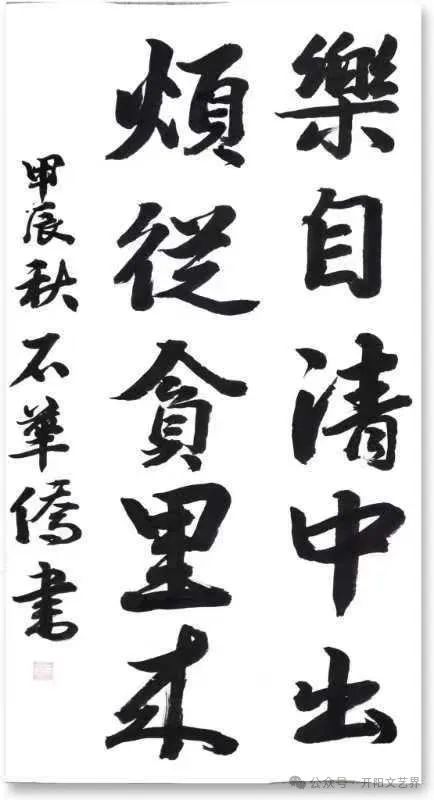 樂自清中出
煩從貪里来
甲辰秋石華僑書
公众号·开阳文艺界